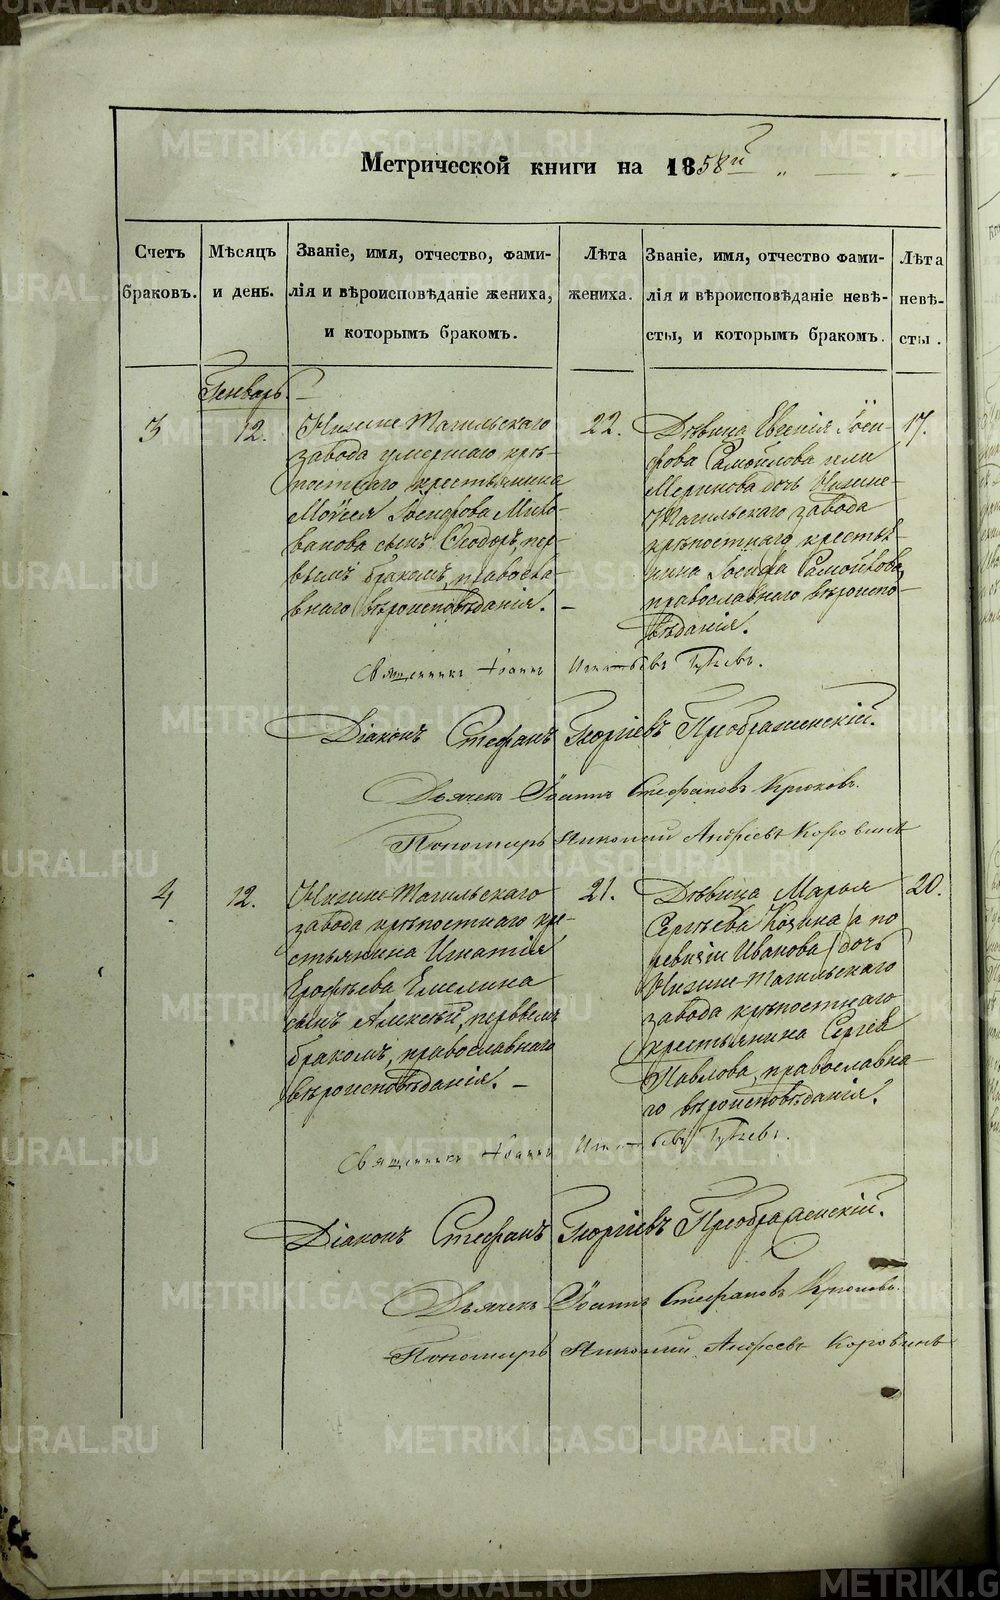 Метрической книги на 1858й
Счетъ браковъ.
Мѣсяцъ и день.
Званіе, имя, отчество, фами-
лія и вѣроисповѣданіе жениха,
и которымъ бракомъ.
Лѣта жениха.
Званіе, имя, отчество фами-
лія и вѣроисповѣданіе невѣ-
сты, и которымъ бракомъ.
Лѣта невѣ-
сты.
Генварь.
3
12.
Нижне-Тагильскаго
завода умершаго крѣ-
постнаго крестьянина
Моѵсея Іосифова
сынъ Ѳеодоръ, пер-
вымъ бракомъ, правосла-
внаго вѣроисповѣданія.
22.
Дѣвица Евгенія Іоси-
фова Самойлова или
дочь Нижне-
Тагильскаго завода
крѣпостнаго крестья-
нина Іосифа Самойлова,
православнаго вѣроиспо-
вѣданія.
17.
Священникъ Іоаннъ
Діаконъ Стефанъ Георгіевъ Преображенскій.
Дьячекъ Іоаннъ Стефановъ Крюковъ.
Пономарь Николай Андреевъ Коровинъ
4
12.
Нижне-Тагильскаго
завода крѣпостнаго кре-
стьянина Игнатія
Ерофѣева Емелина
сынъ Алексѣй, первымъ
бракомъ, православнаго
вѣроисповѣданія.
21.
Дѣвица Марья
Сергѣева Козина (а по
ревизіи Иванова) дочь
Нижне-Тагильскаго
завода крѣпостнаго
крестьянина Сергѣя
Павлова, православна-
го вѣроисповѣданія.
20.
Священникъ Іоаннъ
Діаконъ Стефанъ Георгіевъ Преображенскій.
Дьячекъ Іоаннъ Стефановъ Крюковъ.
Пономарь Николай Андреевъ Коровинъ
METRIKI.GASO-URAL.RU